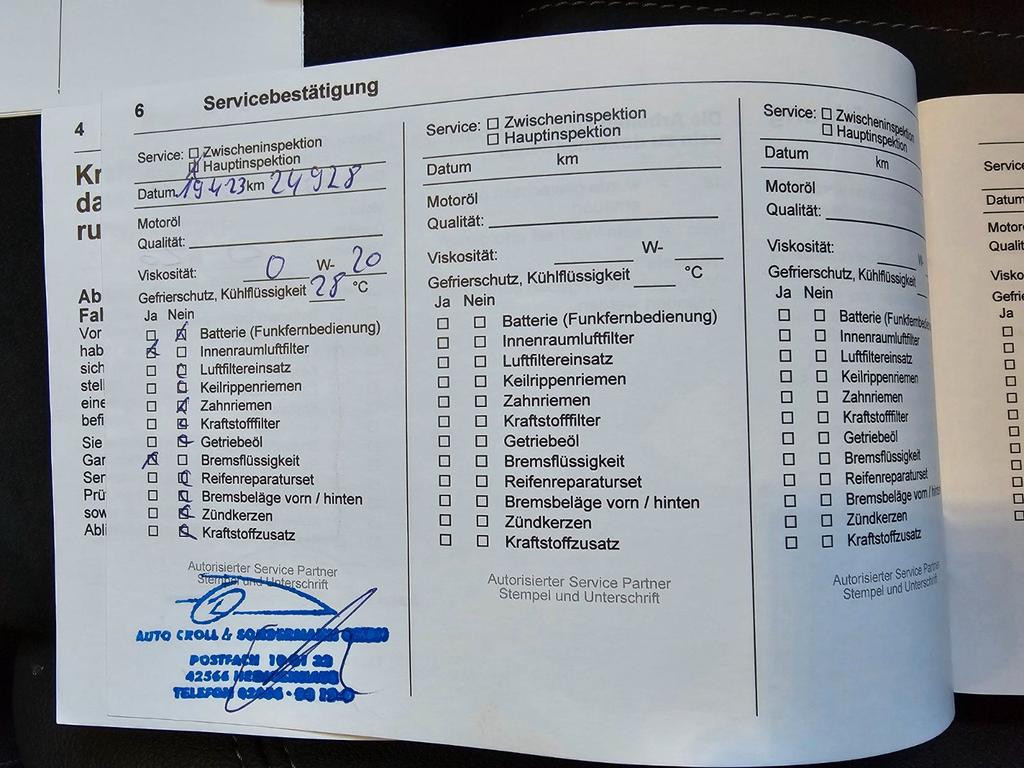 4
Kr
da
ru
Ab
Fal
Vor
hab
sich
stell
eine
befi
Sie
Gar
Ser
Prü
sow
Abli
6 Servicebestätigung
Service: Zwischeninspektion
Hauptinspektion
Datum 19 4 23 km 24928
Motoröl
Qualität:
Viskosität: 0 W- 20
Gefrierschutz, Kühlflüssigkeit 28 °C
Ja Nein
Batterie (Funkfernbedienung)
Innenraumluftfilter
Luftfiltereinsatz
Keilrippenriemen
Zahnriemen
Kraftstofffilter
Getriebeöl
Bremsflüssigkeit
Reifenreparaturset
Bremsbeläge vorn / hinten
Zündkerzen
Kraftstoffzusatz
Autorisierter Service Partner
Stempel und Unterschrift
AUTO CROLL &
POSTFACH
42564
TELEFON
Service: Zwischeninspektion
Hauptinspektion
Datum km
Motoröl
Qualität:
Viskosität: W-
Gefrierschutz, Kühlflüssigkeit °C
Ja Nein
Batterie (Funkfernbedienung)
Innenraumluftfilter
Luftfiltereinsatz
Keilrippenriemen
Zahnriemen
Kraftstofffilter
Getriebeöl
Bremsflüssigkeit
Reifenreparaturset
Bremsbeläge vorn / hinten
Zündkerzen
Kraftstoffzusatz
Autorisierter Service Partner
Stempel und Unterschrift
Service: Zwischeninspektion
Hauptinspektion
Datum km
Motoröl
Qualität:
Viskosität: W-
Gefrierschutz, Kühlflüssigkeit
Ja Nein
Batterie (Funkfernbedie
Innenraumluftfilter
Luftfiltereinsatz
Keilrippenriemen
Zahnriemen
Kraftstofffilter
Getriebeöl
Bremsflüssigkeit
Reifenreparaturset
Bremsbeläge vorn / hint
Zündkerzen
Kraftstoffzusatz
Autorisierter Service Partner
Stempel und Unterschrift
Service
Datum
Motor
Qualit
Visko
Gefrie
Ja